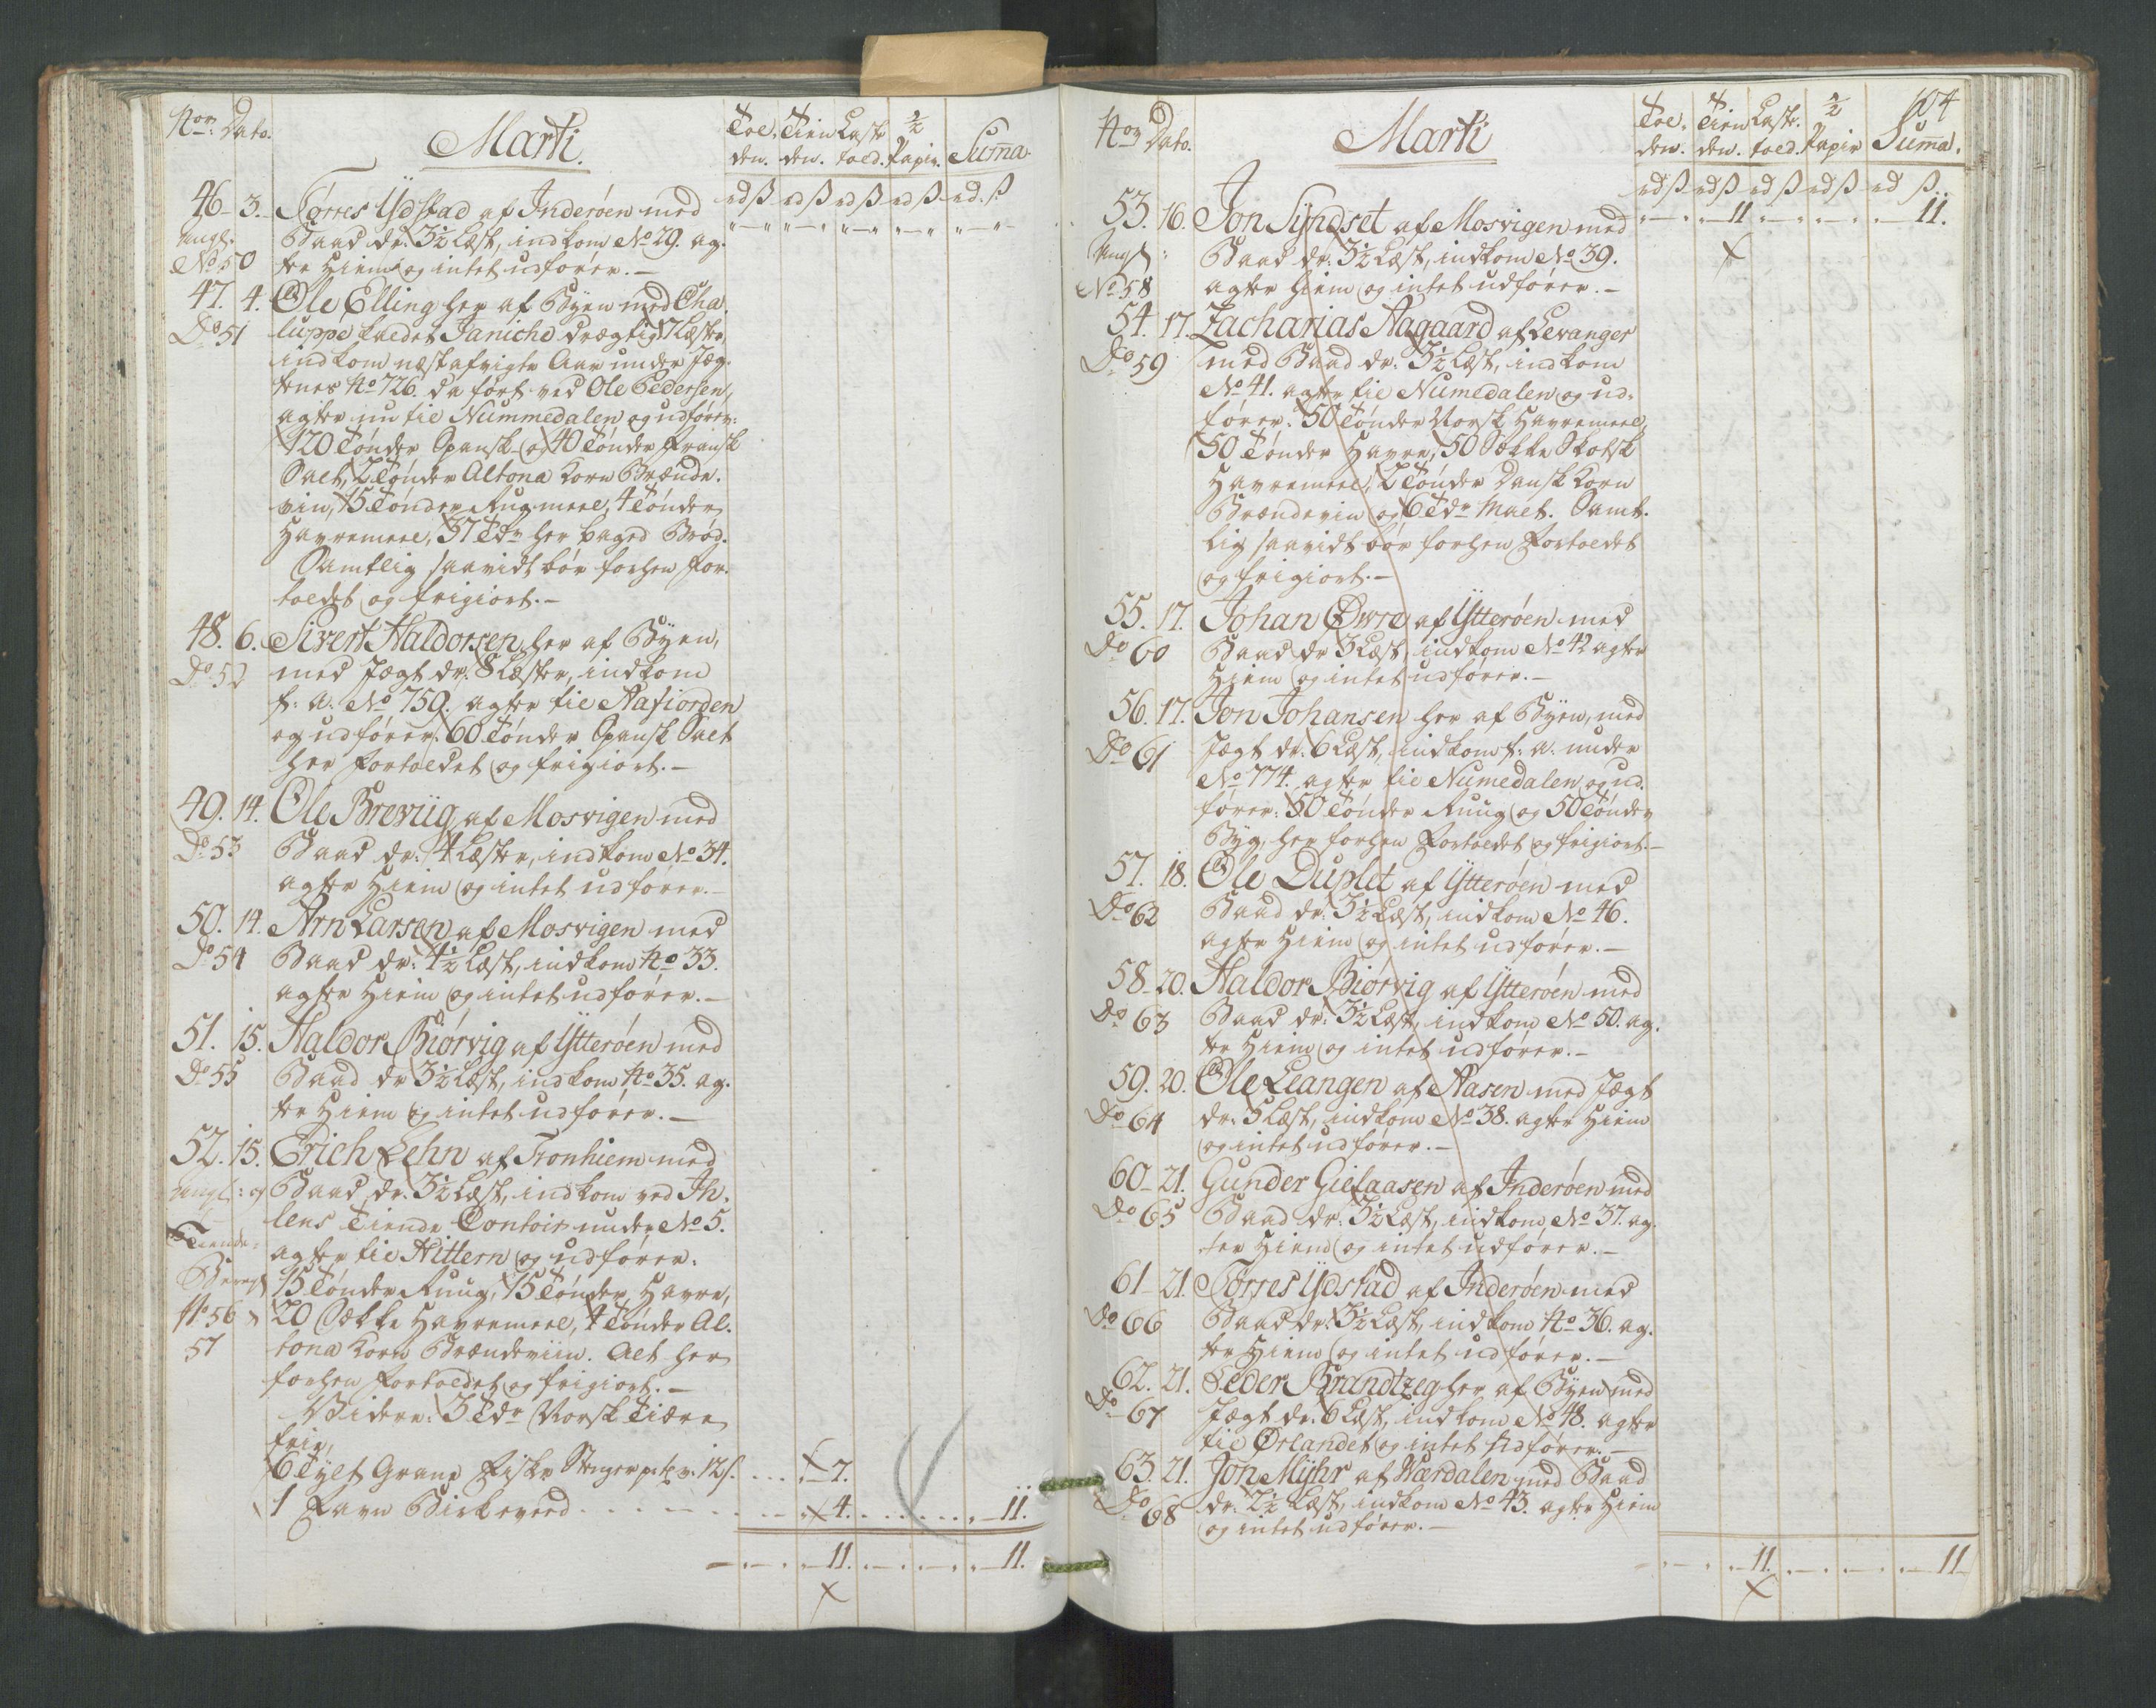 Nor. Dato.
Marti.
Toe, Tien Laste 2/2
den. den. toed. Papir. Suma.
rd ß rd ß rd ß rd ß rd. ß
46 - 3. Tørres Ydstad af Inderøen med
Angl. Baad dr. 3½ Læst, indkom No 29. ag-
No 50 ter Hiem og intet udfører. -
47. 4. Ole Elling her af Byen med Cha-
Do 51 luppe kaldet Janiche drægtig 7 Læster,
indkom næstafvigte Aar under Jæg-
ternes No 726. da ført ved Ole Pedersen,
agter nu til Nummedalen og udfører:
120 Tønder Spansk og 40 Tønder Fransk
Salt, 2 Tønder Altona Korn Brænde-
vin, 15 Tønder Rugmeel, 4 Tønder
Havremeel, 37 Tdr her baged Brød.
Samtlig saavidt bør forhen for-
toldet og frigiort. -
48. 6. Sivert Haldorsen her af Byen,
Do 52 med Jægt dr. 8 Læster, indkom
f: a. No 759. agter til Aafiorden
og udfører: 60 Tønder Spansk Salt
her fortoldet og frigiort. -
49. 14. Ole Breviig af Mosvigen med
Do 53 Baad dr. 4 Læster, indkom No 34.
agter Hiem og intet udfører. -
50. 14. Arn Larsen af Mosvigen med
Do 54 Baad dr: 4½ Læst, indkom No 33.
agter Hiem og intet udfører. -
51. 15. Haldor Biørvig af Ytterøen med
Do 55 Baad dr 3½ Læst, indkom No 35. ag-
ter Hiem og intet udfører. -
52. 15. Erich Lehn af Tronhiem med
Angl: og Baad dr. 3½ Læst, indkom ved Ih-
lens Tiende Contoir under No 5.
Tiende- agter til Hittern og udfører.
15 Tønder Ruug, 15 Tønder Havre,
No 56 20 Sække Havremeel, 4 Tønder Al-
57 tona Korn Brændeviin. Alt her
forhen fortoldet og frigiort. -
Videre: 3 Tdr Norsk Tiære
frie,
6 Tylt Grane Fiske Stenger pr T. 12 ß. . . . 7.
1 Favn Birkeveed . . . . 4. . . . 11.
11. . . . 11.
104
Nor Dato.
Marti
Toe, Tien Laste. 2/2
den. den. toed. Papir Suma.
rd ß rd ß rd ß rd ß rd ß
11. . . . 11.
53. 16. Jon Syndset af Mosvigen med
Angl: Baad dr. 3½ Læst, indkom No 39.
No 58 agter Hiem og intet udfører. -
54. 17. Zacharias Aagaard af Levanger
Do 59 med Baad dr. 3½ Læst, indkom
No 41. agter til Numedalen og ud-
fører: 50 Tønder Norsk Havremeel,
50 Tønder Havre, 50 Sække Skotsk
Havremeel, 2 Tønder Dansk Korn
Brændeviin og 6 Tdr Malt. Samt-
lig saavidt bør forhen fortoldet
og frigiort. -
55. 17. Johan Øvre af Ytterøen med
Do 60 Baad dr 3 Læst, indkom No 42 agter
Hiem og intet udfører. -
56. 17. Jon Johansen her af Byen, med
Do 61 Jægt dr. 6 Læst, indkom f: a. under
No 774. agter til Numedalen og ud-
fører: 50 Tønder Ruug og 50 Tønder
Byg, her forhen fortoldet og frigiort. -
57. 18. Ole Duplet af Ytterøen med
Do 62 Baad dr. 3½ Læst, indkom No 46.
agter Hiem og intet udfører. -
58 - 20. Haldor Biørvig af Ytterøen med
Do 63 Baad dr: 3½ Læst, indkom No 50. ag-
ter Hiem og intet udfører. -
59. 20. Ole Leangen af Aasen med Jægt
Do 64 dr: 5 Læst, indkom No 38. agter Hiem
og intet udfører. -
60 - 21. Gunder Gielaasen af Inderøen med
Do 65 Baad dr. 3½ Læst, indkom No 37. ag-
ter Hiem og intet udfører. -
61 - 21. Tørres Ydstad af Inderøen med
Do 66 Baad dr. 3½ Læst, indkom No 36. ag-
ter Hiem og intet udfører. -
62. 21. Peder Brandtzeg her af Byen med
Do 67 Jægt dr. 6 Læst, indkom No 48. agter
til Ørlandet og intet udfører. -
63. 21. Jon Myhr af Værdalen med Baad
Do 68 dr. 2½ Læst, indkom No 43. agter Hiem
og intet udfører. -
11. . . . 11